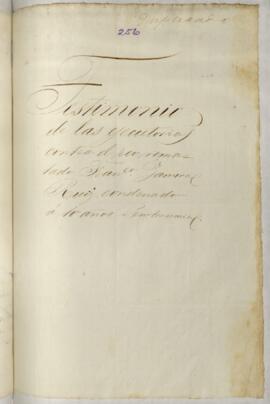 256
Testimonio
de las ejecutorias
contra el reo rema-
tado Fran.co Zamora
Ruiz condenado
a 10 años